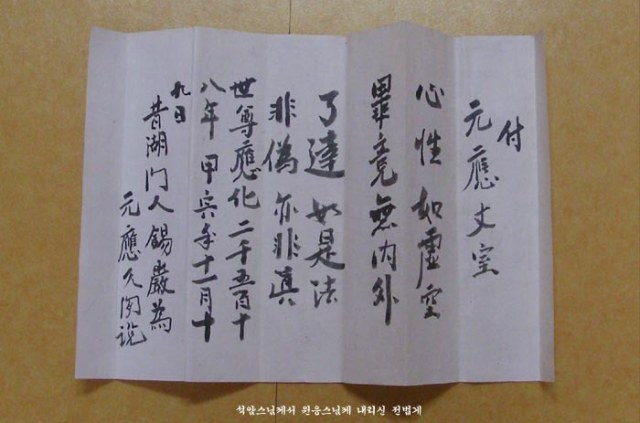 付
元應丈室
心性如虛空
畢竟無內外
了達如是法
非偽亦非眞
世尊應化二千五百十
八年甲寅年十一月十
九日
昔湖門人錫巖為
元應久說
석암스님께서 원응스님께 내리신 전법게